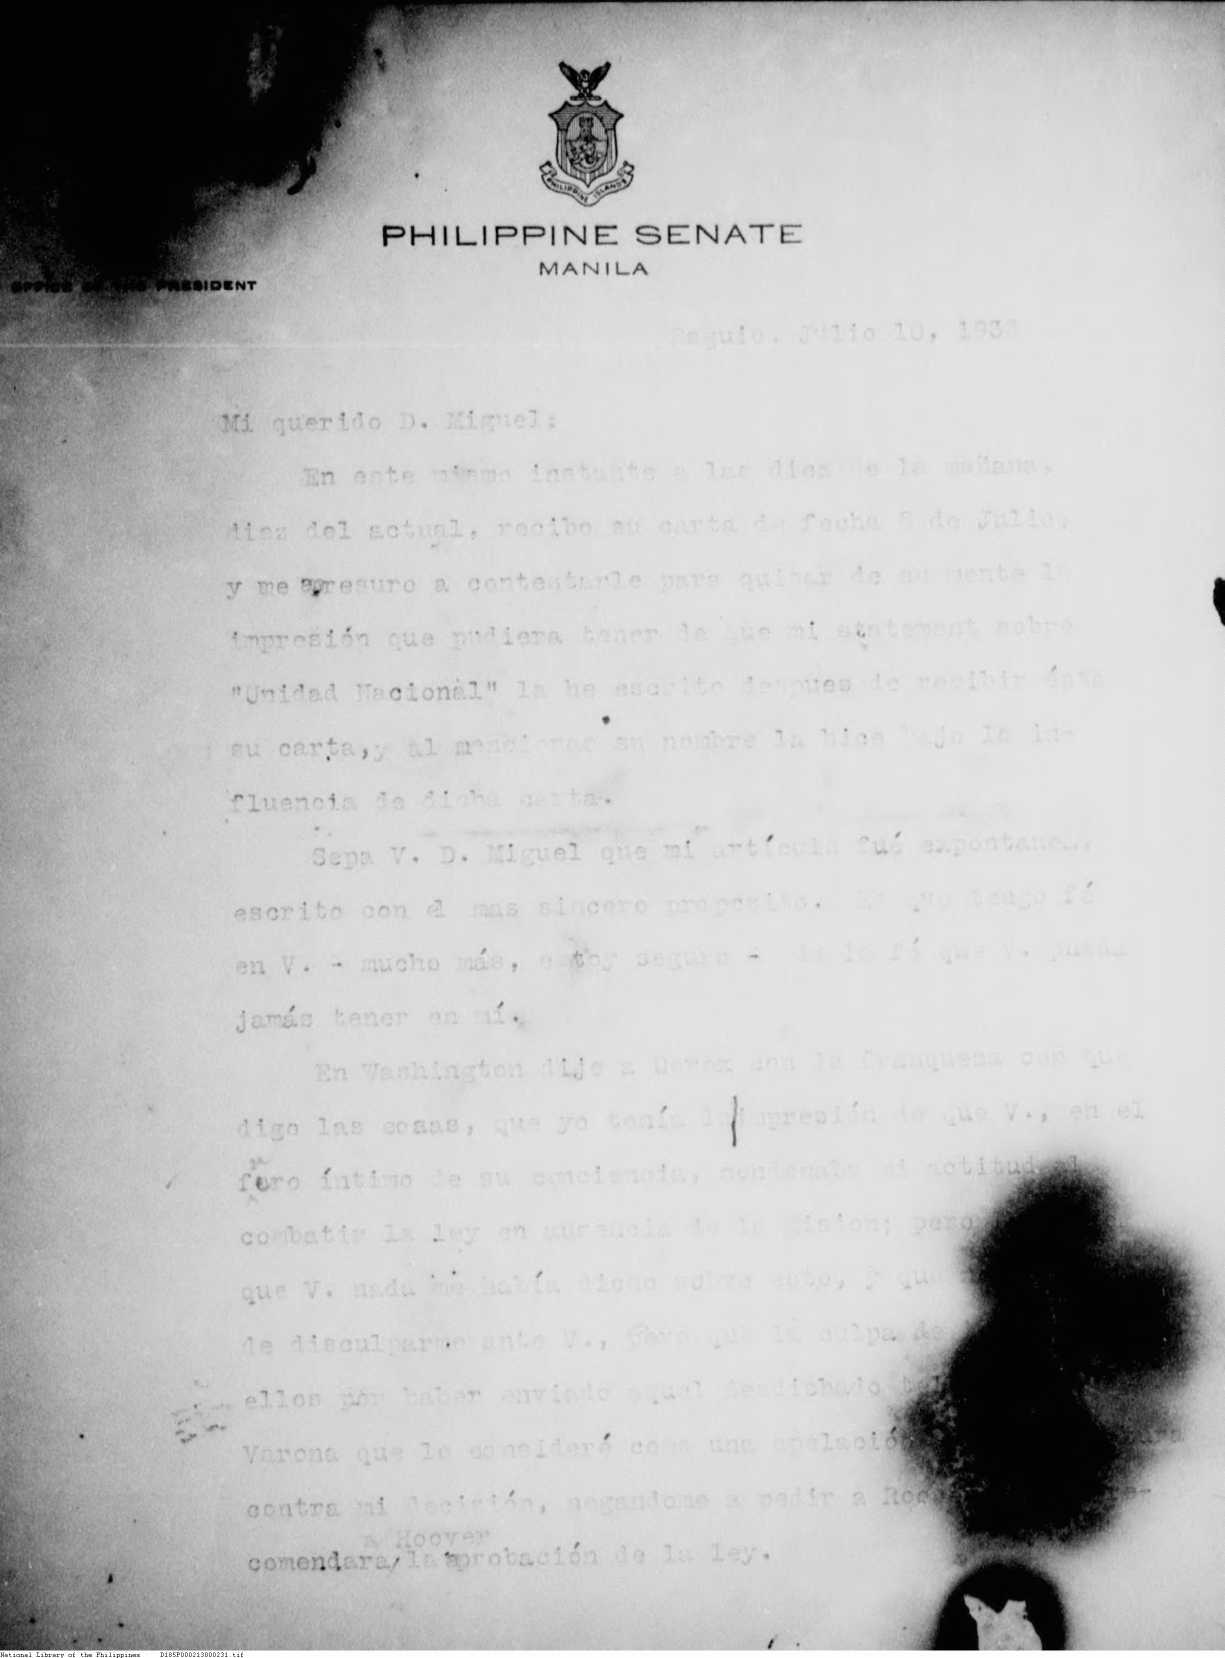 PHILIPPINE ISLANDS
PHILIPPINE SENATE
MANILA
OFFICE OF THE PRESIDENT
Baguio. Julio 10, 193
Mi querido D. Miguel:
En este mismo instante a las diez de la mañana,
diez del actual, recibo su carta de fecha 8 de Julio,
y me apresuro a contestarle para quitar de su mente la
impresión que pudiera tener de que mi statement sobre
"Unidad Nacional" la he escrito despues de recibir ésta
su carta, y al mencionar su nombre la hice bajo la in-
fluencia de dicha carta.
Sepa V. D. Miguel que mi artículo fué expontaneo,
escrito con el mas sincero proposito. Es que tengo fé
en V. - mucho más, estoy seguro - de la fé que V. pueda
jamás tener en mí.
En Washington dije a Osrox con la franqueza con que
digo las cosas, que yo tenía la impresión de que V., en el
fuero íntimo de su conciencia, condenaba mi actitud al
combatir la ley en ausencia de la Mision; pero
que V. nada me había dicho sobre esto, y que
de disculparme ante V., pero que la culpa de
ellos por haber enviado aquel desdichado
Varona que lo consideré como una apelación
contra mi decisión, negandome a pedir a
a Hoover
comendara/la aprobación de la ley.
National Library of the Philippines D185P000213800231.tif